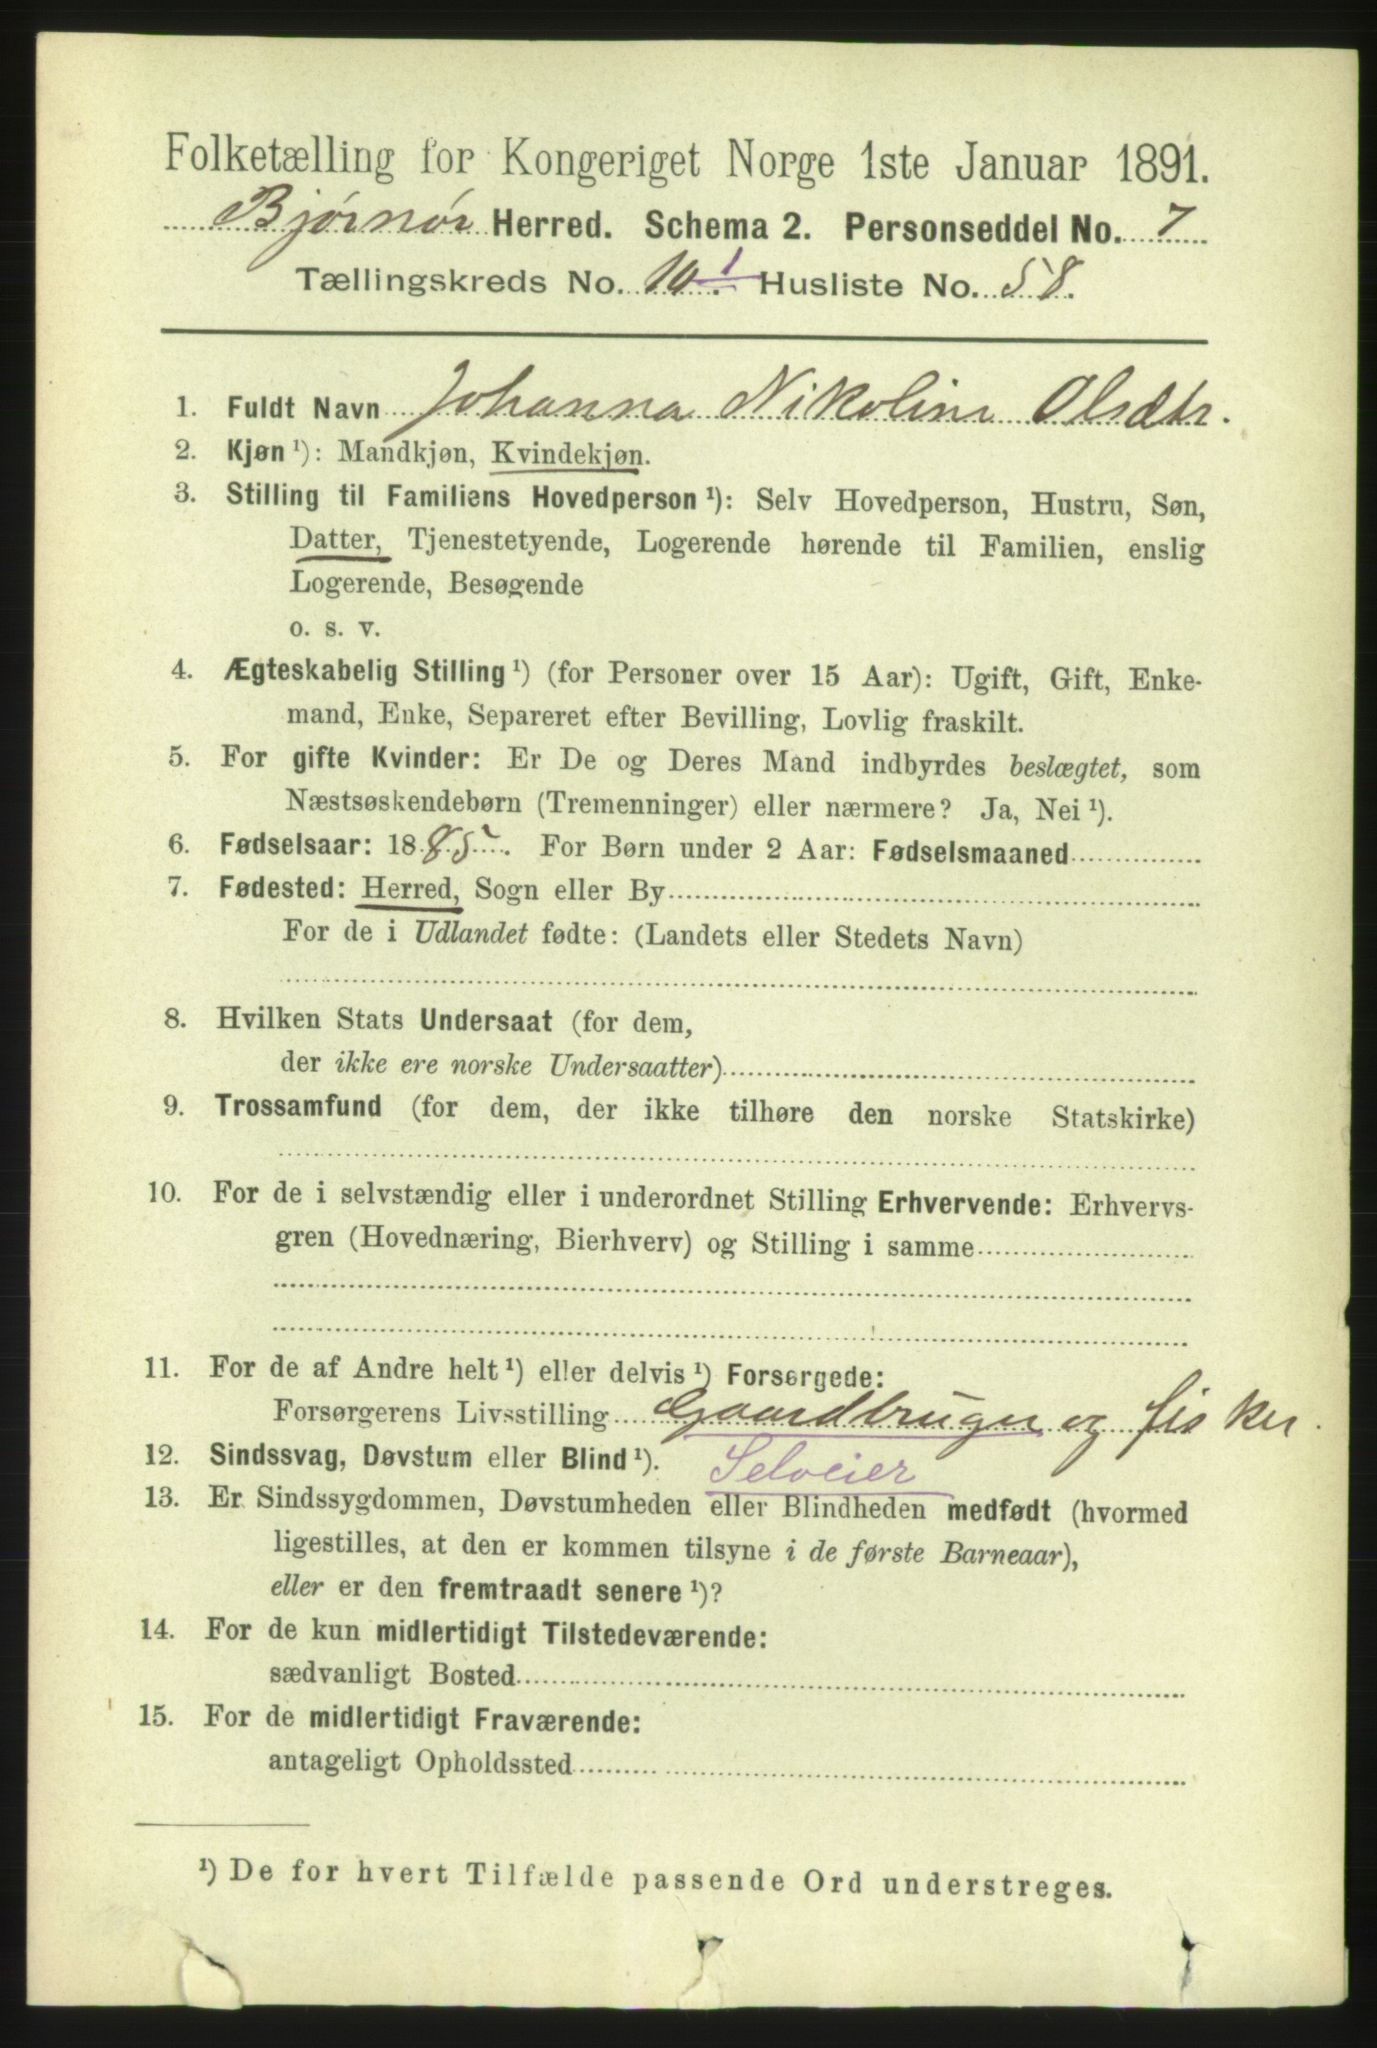 Folketælling for Kongeriget Norge 1ste Januar 1891.
Bjørnør Herred. Schema 2. Personseddel No. 7
Tællingskreds No. 10.1 Husliste No. 58.
1. Fuldt Navn Johanna Nikoline Olsdtr.
2. Kjøn ¹): Mandkjøn, Kvindekjøn.
3. Stilling til Familiens Hovedperson ¹): Selv Hovedperson, Hustru, Søn,
Datter, Tjenestetyende, Logerende hørende til Familien, enslig
Logerende, Besøgende
o. s. v.
4. Ægteskabelig Stilling ¹) (for Personer over 15 Aar): Ugift, Gift, Enke-
mand, Enke, Separeret efter Bevilling, Lovlig fraskilt.
5. For gifte Kvinder: Er De og Deres Mand indbyrdes beslægtet, som
Næstsøskendebørn (Tremenninger) eller nærmere? Ja, Nei ¹).
6. Fødselsaar: 1885. For Børn under 2 Aar: Fødselsmaaned
7. Fødested: Herred, Sogn eller By
For de i Udlandet fødte: (Landets eller Stedets Navn)
8. Hvilken Stats Undersaat (for dem,
der ikke ere norske Undersaatter)
9. Trossamfund (for dem, der ikke tilhøre den norske Statskirke)
10. For de i selvstændig eller i underordnet Stilling Erhvervende: Erhvervs-
gren (Hovednæring, Bierhverv) og Stilling i samme
11. For de af Andre helt ¹) eller delvis ¹) Forsørgede:
Forsørgerens Livsstilling Gaardbruger og fisker.
12. Sindssvag, Døvstum eller Blind ¹). Selveier
13. Er Sindssygdommen, Døvstumheden eller Blindheden medfødt (hvormed
ligestilles, at den er kommen tilsyne i de første Barneaar),
eller er den fremtraadt senere ¹)?
14. For de kun midlertidigt Tilstedeværende:
sædvanligt Bosted
15. For de midlertidigt Fraværende:
antageligt Opholdssted
¹) De for hvert Tilfælde passende Ord understreges.